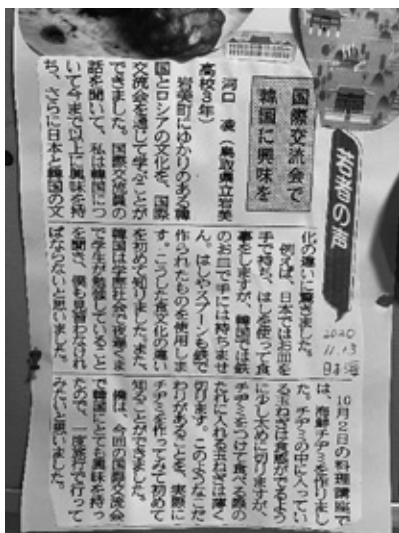 若者の声
国際交流会で
韓国に興味を
河口 凌（鳥取県立岩美
高校3年）
岩美町にゆかりのある韓
国とロシアの文化を、国際
交流会を通じて学ぶことが
できました。国際交流員の
話を聞いて、私は韓国につ
いて今まで以上に興味を持
ち、さらに日本と韓国の文
化の違いに驚きました。
例えば、日本ではお皿を
手で持ち、はしを使って食
事をしますが、韓国では鉄
のお皿で手には持ちませ
ん。はしやスプーンも鉄で
作られたものを使用しま
す。こうした食文化の違い
を初めて知りました。また、
韓国は学歴社会で夜遅くま
で学生が勉強していること
を聞き、僕も見習わなけれ
ばならないと思いました。
2020
11.13
10月2日の料理講座で
は、海鮮チヂミを作りまし
た。チヂミの中に入ってい
る玉ねぎは食感がでるよう
に少し太めに切りますが、
チヂミをつけて食べる際の
たれに入れる玉ねぎは薄く
切ります。このようなこだ
わりがあることを、実際に
チヂミを作ってみて初めて
知ることができました。
僕は、今回の国際交流会
で韓国にとても興味を持っ
たので、一度旅行で行って
みたいと思いました。